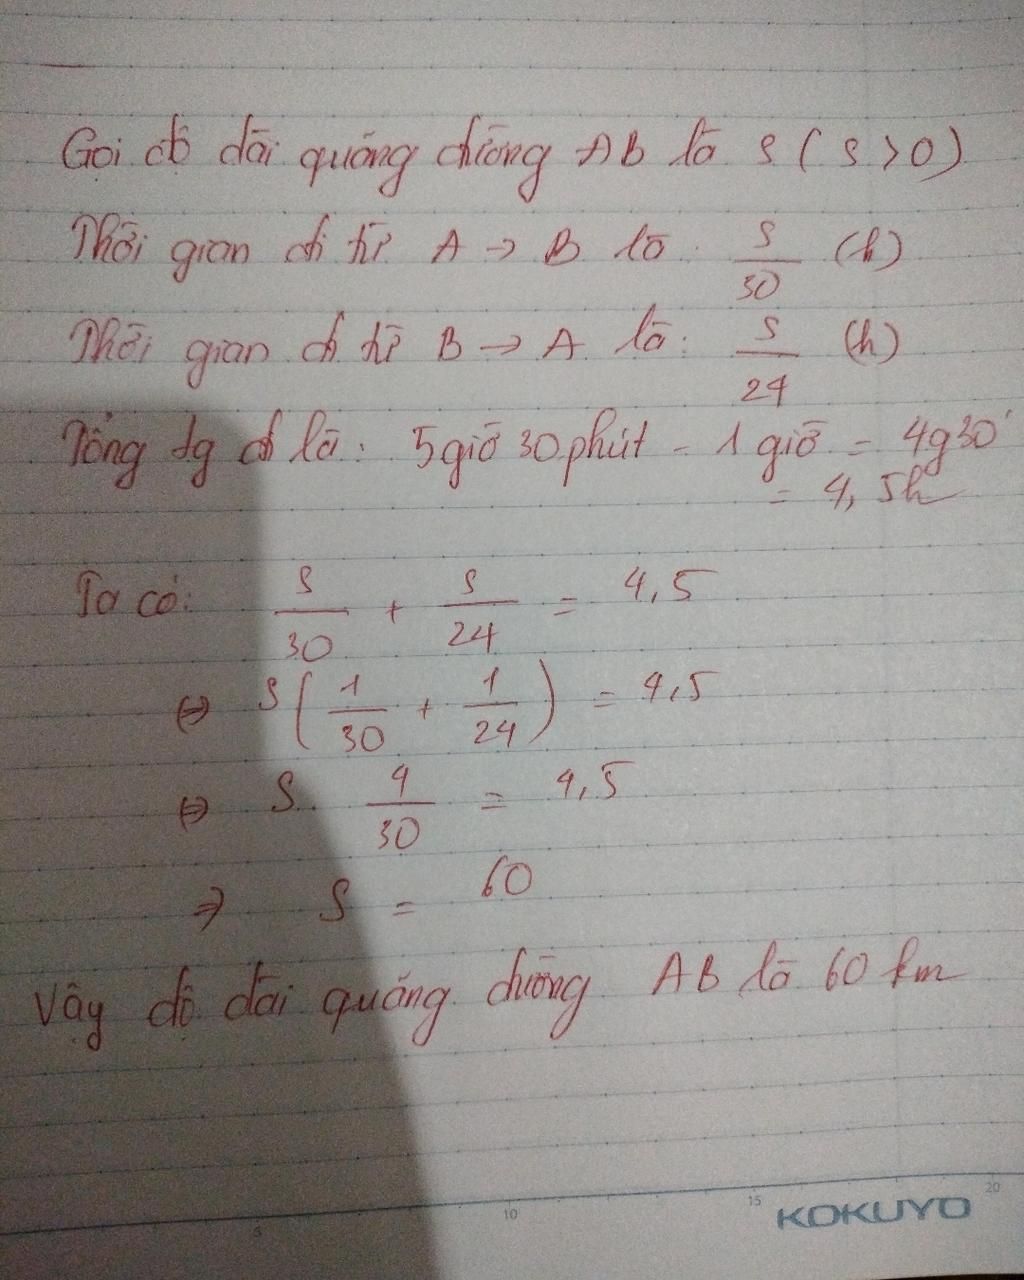 Gọi độ dài quãng đường AB là S ( S > 0 )
Thời gian đi từ A → B là : S/30 (h)
Thời gian đi từ B → A là : S/24 (h)
Tổng tg đi là : 5 giờ 30 phút - 1 giờ = 4g30'
= 4,5h
Ta có : S/30 + S/24 = 4,5
⇔ S( 1/30 + 1/24 ) = 4,5
⇔ S. 9/30 = 4,5
⇒ S = 60
Vậy độ dài quãng đường AB là 60 km
5 10 15 20
KOKUYO